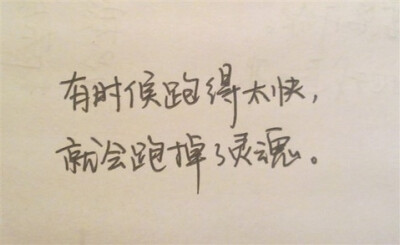 有时候跑得太快，
就会跑掉了灵魂。